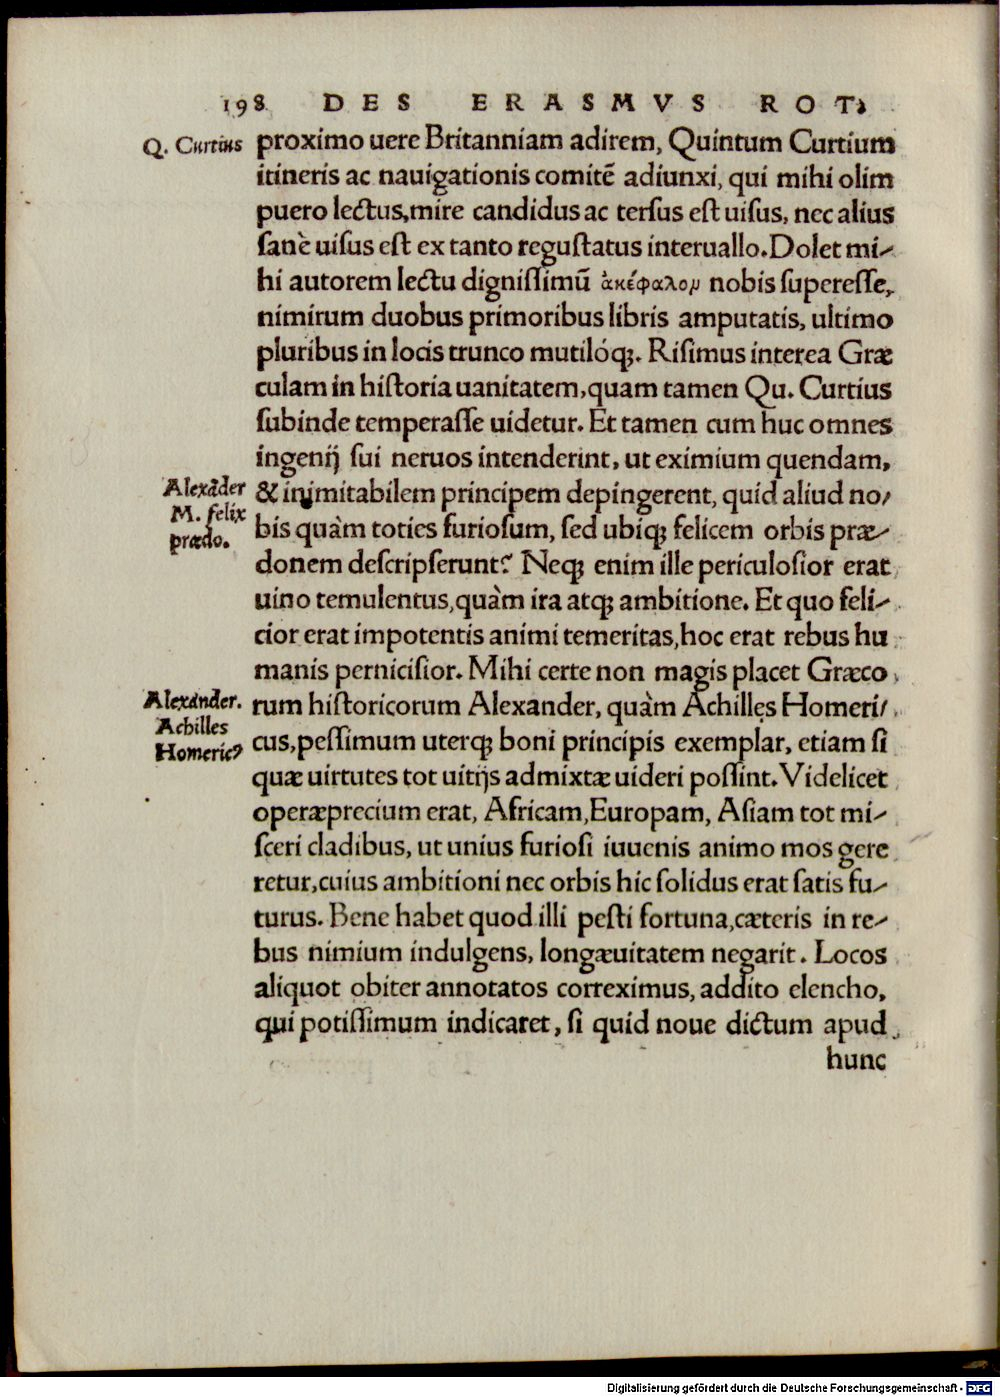 198 DES ERASMVS ROT.
Q. Curtius
proximo uere Britanniam adirem, Quintum Curtium
itineris ac nauigationis comitẽ adiunxi, qui mihi olim
puero lectus, mire candidus ac tersus est uisus, nec alius
sanè uisus est ex tanto regustatus interuallo. Dolet mi-
hi autorem lectu dignissimũ ἀκέφαλον nobis superesse,
nimirum duobus primoribus libris amputatis, ultimo
pluribus in locis trunco mutilóq;. Risimus interea Græ
culam in historia uanitatem, quam tamen Qu. Curtius
subinde temperasse uidetur. Et tamen cum huc omnes
ingenij sui neruos intenderint, ut eximium quendam,
Alexãder
M. felix
prædo.
& inimitabilem principem depingerent, quid aliud no-
bis quàm toties furiosum, sed ubiq; felicem orbis præ-
donem descripserunt? Neq; enim ille periculosior erat
uino temulentus, quàm ira atq; ambitione. Et quo feli-
cior erat impotentis animi temeritas, hoc erat rebus hu
manis pernicisior. Mihi certe non magis placet Græco
Alexander.
Achilles
Homericꝰ
rum historicorum Alexander, quàm Achilles Homeri-
cus, pessimum uterq; boni principis exemplar, etiam si
quæ uirtutes tot uitijs admixtæ uideri possint. Videlicet
operæprecium erat, Africam, Europam, Asiam tot mi-
sceri cladibus, ut unius furiosi iuuenis animo mos gere
retur, cuius ambitioni nec orbis hic solidus erat satis fu-
turus. Bene habet quod illi pesti fortuna, cæteris in re-
bus nimium indulgens, longæuitatem negarit. Locos
aliquot obiter annotatos correximus, addito elencho,
qui potissimum indicaret, si quid noue dictum apud
hunc
Digitalisierung gefördert durch die Deutsche Forschungsgemeinschaft - DFG